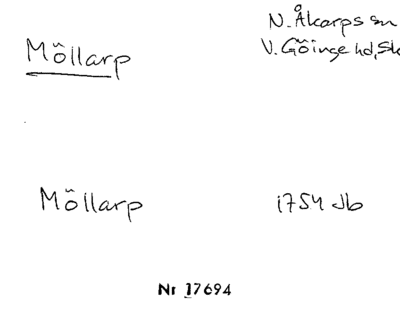 Möllarp
N. Åkarps sn
V. Göinge hd, Sk
Möllarp
1754 Jb
Nr 17694